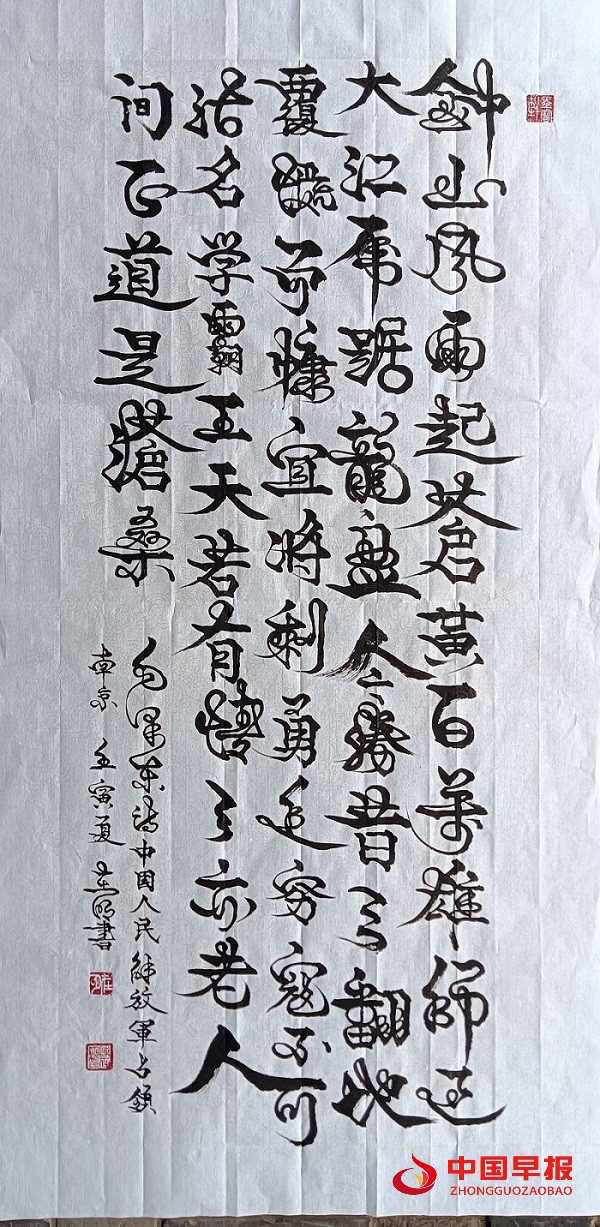 鈡山風雨起苍黃百萬雄師过
大江虎踞龍盘今勝昔天翻地
覆慨而慷宜将剩勇追穷寇不可
沽名学霸王天若有情天亦老人
间正道是滄桑
毛泽东诗中国人民解放軍占領
南京 壬寅夏 書
中国早报
ZHONGGUOZAOBAO